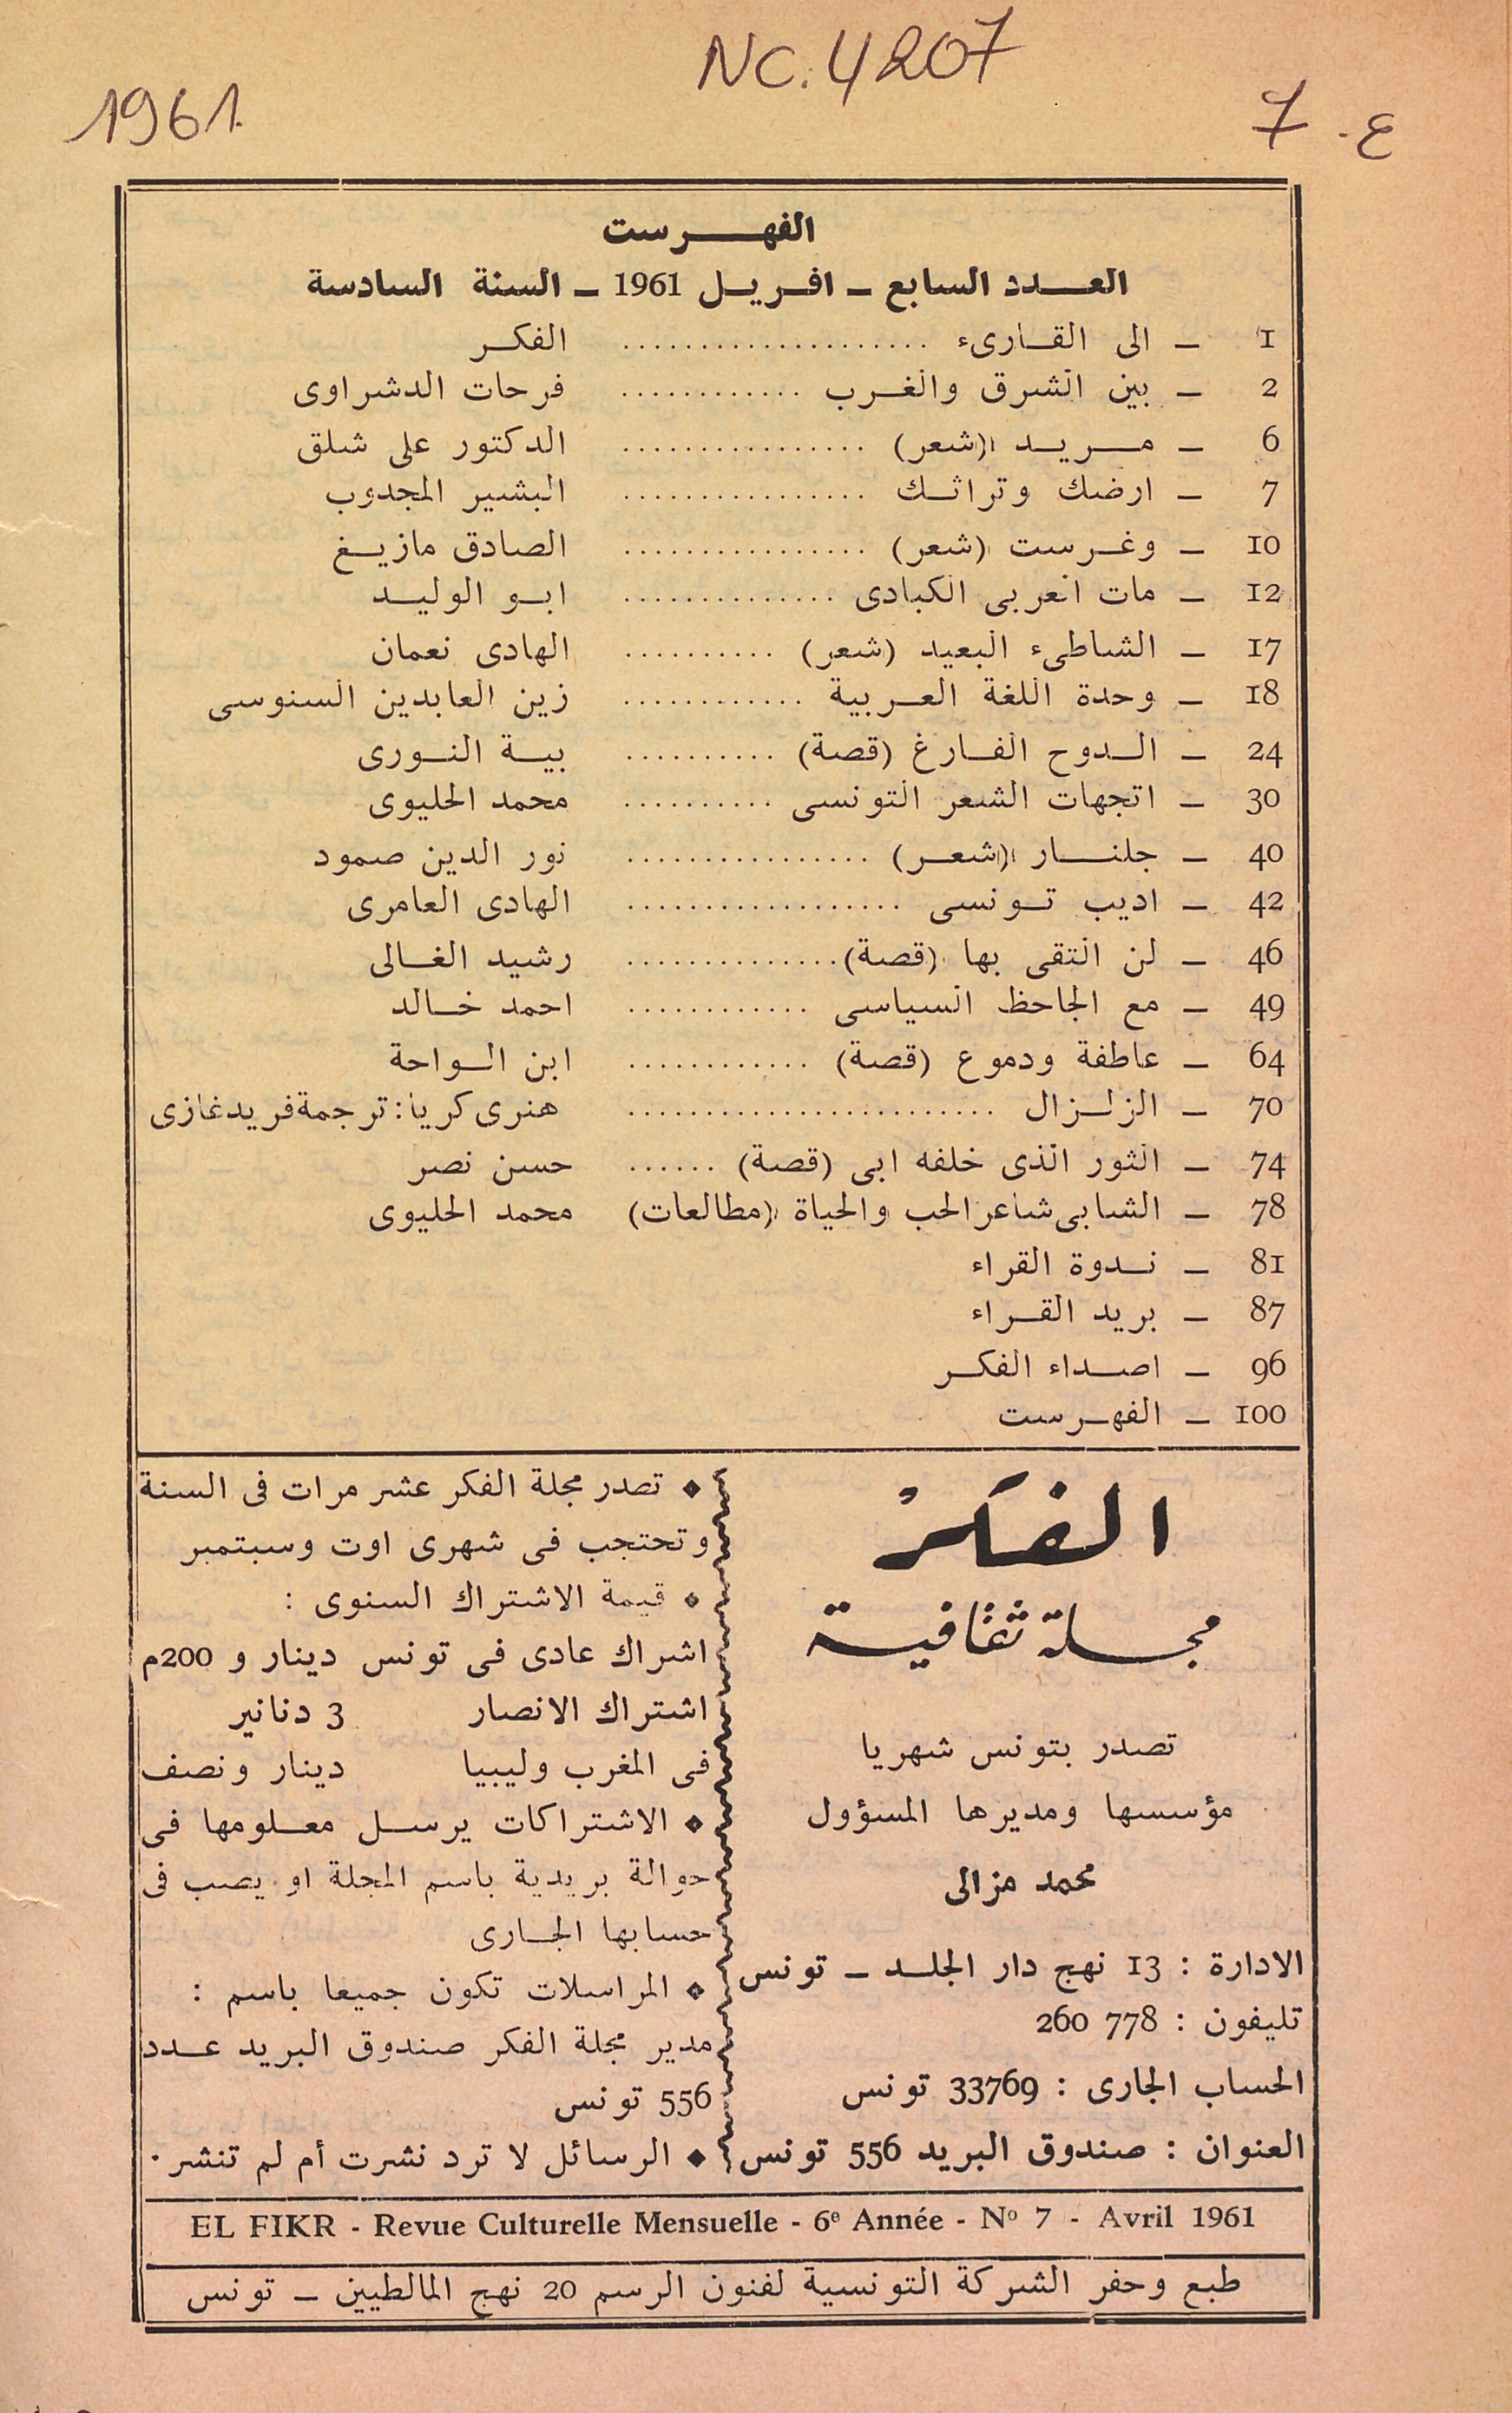 NC. 4207
1961
ع. 7
الفهرست
العدد السابع - افريل 1961 - السنة السادسة
1 - الى القارىء .................... الفكر
2 - بين الشرق والغرب ............ فرحات الدشراوى
6 - مريد (شعر) ................ الدكتور على شلق
7 - ارضك وتراثك ................ البشير المجدوب
10 - وغرست (شعر) ................ الصادق مازيغ
12 - مات العربى الكبادى .............. ابو الوليد
17 - الشاطىء البعيد (شعر) .......... الهادى نعمان
18 - وحدة اللغة العربية ............ زين العابدين السنوسى
24 - الدوح الفارغ (قصة) .......... بية النورى
30 - اتجهات الشعر التونسى .......... محمد الحليوى
40 - جلنار (شعر) ................ نور الدين صمود
42 - اديب تونسى .................. الهادى العامرى
46 - لن التقى بها (قصة) .............. رشيد الغالى
49 - مع الجاحظ السياسى ............ احمد خالد
64 - عاطفة ودموع (قصة) ............ ابن الواحة
70 - الزلزال ........................ هنرى كريا : ترجمة فريد غازى
74 - الثور الذى خلفه ابى (قصة) ...... حسن نصر
78 - الشابى شاعر الحب والحياة (مطالعات) محمد الحليوى
81 - ندوة القراء
87 - بريد القراء
96 - اصداء الفكر
100 - الفهرست
الفكر
مجلة ثقافية
تصدر بتونس شهريا
مؤسسها ومديرها المسؤول
محمد مزالى
الادارة : 13 نهج دار الجلد - تونس
تليفون : 778 260
الحساب الجارى : 33769 تونس
العنوان : صندوق البريد 556 تونس
♦ تصدر مجلة الفكر عشر مرات فى السنة
وتحتجب فى شهرى اوت وسبتمبر
♦ قيمة الاشتراك السنوى :
اشراك عادى فى تونس دينار و 200م
اشتراك الانصار 3 دنانير
فى المغرب وليبيا دينار ونصف
♦ الاشتراكات يرسل معلومها فى
حوالة بريدية باسم المجلة او يصب فى
حسابها الجارى
♦ المراسلات تكون جميعا باسم :
مدير مجلة الفكر صندوق البريد عدد
556 تونس
♦ الرسائل لا ترد نشرت أم لم تنشر .
EL FIKR - Revue Culturelle Mensuelle - 6e Année - No 7 - Avril 1961
طبع وحفر الشركة التونسية لفنون الرسم 20 نهج المالطيين - تونس